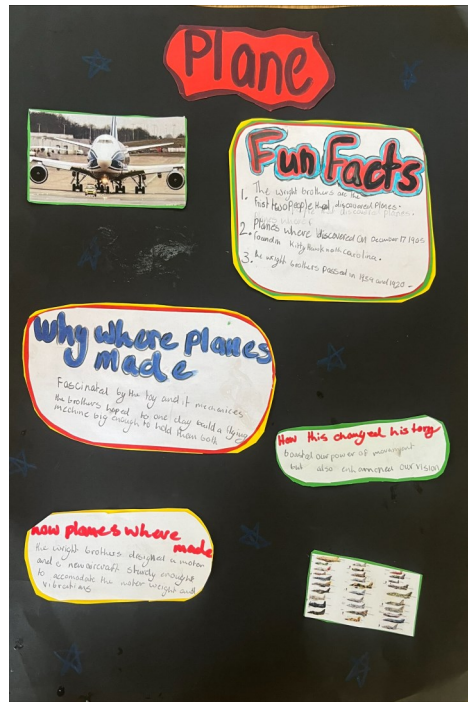 Plane
Fun Facts
1. The wright brothers are the
First two People that discovered Planes.
2. Planes where discovered on December 17 1905
found in kitty Hawk north carolina.
3. the wright brothers passed in 1954 and 1920.
Why where planes
made
Fascinated by the toy and it mechanices
the brothers hoped to one day build a flying
mechine big enough to hold them both
How this changed history
boosted our power of movement
but also enhanced our vision
how planes where
made
the wright brothers designed a motor
and a new aircraft sturdy enought
to accomodate the motor weight and
vibrations